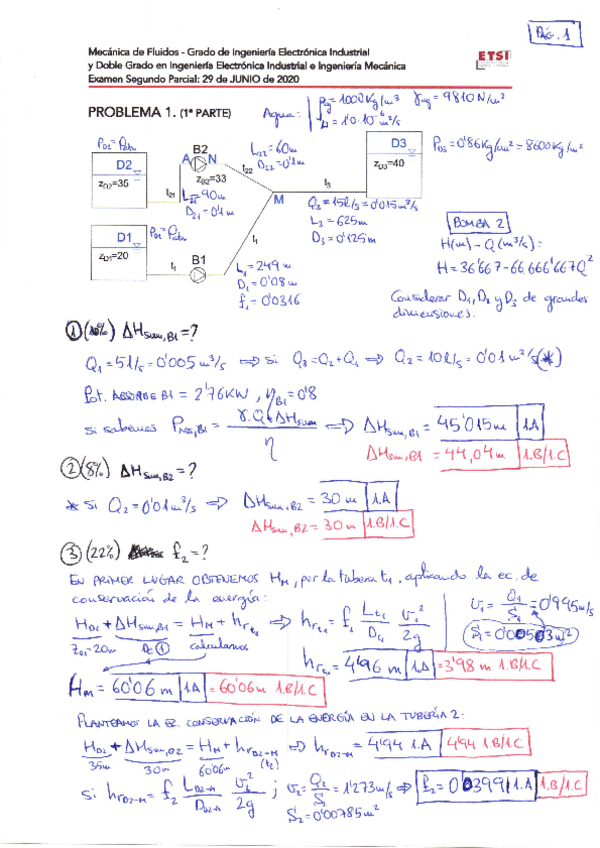 PÁG. 1
Mecánica de Fluidos - Grado de Ingeniería Electrónica Industrial
y Doble Grado en Ingeniería Electrónica Industrial e Ingeniería Mecánica
Examen Segundo Parcial: 29 de JUNIO de 2020
ETSi
PROBLEMA 1. (1ª PARTE)
Agua: ρg = 1000 Kg/m³ γag = 9810 N/m³
μ = 1'0·10⁻⁶ m²/s
D2
zD2=35
A
B2
N
zB2=33
L22 = 60m
D22 = 0'1m
D3
zD3=40
PD3 = 0'86 Kg/cm² = 8600 Kg/m²
t21
L21 = 40m
D21 = 0'1m
M
t3
Q3 = 15l/s = 0'015m³/s
L3 = 625m
D3 = 0'125m
D1
zD1=20
t1
B1
t1
L1 = 249m
D1 = 0'08m
f1 = 0'0316
BOMBA 2
H(m) - Q(m³/s):
H = 36'667 - 66666'667Q²
Considerar D1, D2 y D3 de grandes
dimensiones.
① ΔHsum,B1 = ?
Q1 = 5l/s = 0'005 m³/s ⇒ si Q3 = Q2 + Q1 ⇒ Q2 = 10l/s = 0'01 m³/s (*)
Pot. ABSORBE B1 = 2'76KW, ηB1 = 0'8
si sabemos Pabs,B1 = γ·Q·ΔHsum / η ⇒ ΔHsum,B1 = 45'015m 1.A
ΔHsum,B1 = 44,04m 1.B/1.C
② (8%) ΔHsum,B2 = ?
* si Q2 = 0'01m³/s ⇒ ΔHsum,B2 = 30m 1.A
ΔHsum,B2 = 30m 1.B/1.C
③ (22%) f2 = ?
EN PRIMER LUGAR OBTENEMOS HM, por la tubería t1, aplicando la ec. de
conservación de la energía:
HD1 + ΔHsum,B1 = HM + hrt1 ⇒ hrt1 = f1 Lt1/Dt1 v1²/2g
v1 = Q1/S1 = 0'995m/s
S1 = 0'00503m²
zD1=20m De ① calculamos
hrt1 = 4'96m 1.A = 3'98m 1.B/1.C
HM = 60'06m 1.A = 60'06m 1.B/1.C
PLANTEAMOS LA EC. CONSERVACIÓN DE LA ENERGÍA EN LA TUBERÍA 2:
HD2 + ΔHsum,D2 = HM + hrD2-M ⇒ hrD2-M = 4'94 1.A 4'94 1.B/1.C
35m 30m 60'06m (t2)
si hrD2-M = f2 LD2-M/DD2-M v2²/2g ; v2 = Q2/S2 = 1'273m/s ⇒ f2 = 0'0399 1.A 1.B/1.C
S2 = 0'00785m²